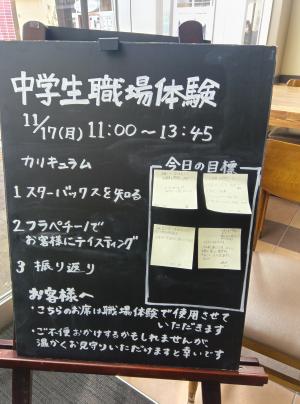 中学生職場体験
11/17(月) 11:00～13:45
カリキュラム
1 スターバックスを知る
2 フラペチーノで
お客様にテイスティング
3 振り返り
今日の目標
お客様へ
・こちらのお席は職場体験で使用させて
いただきます
・ご不便おかけするかもしれませんが
温かくお見守りいただけますと幸いです